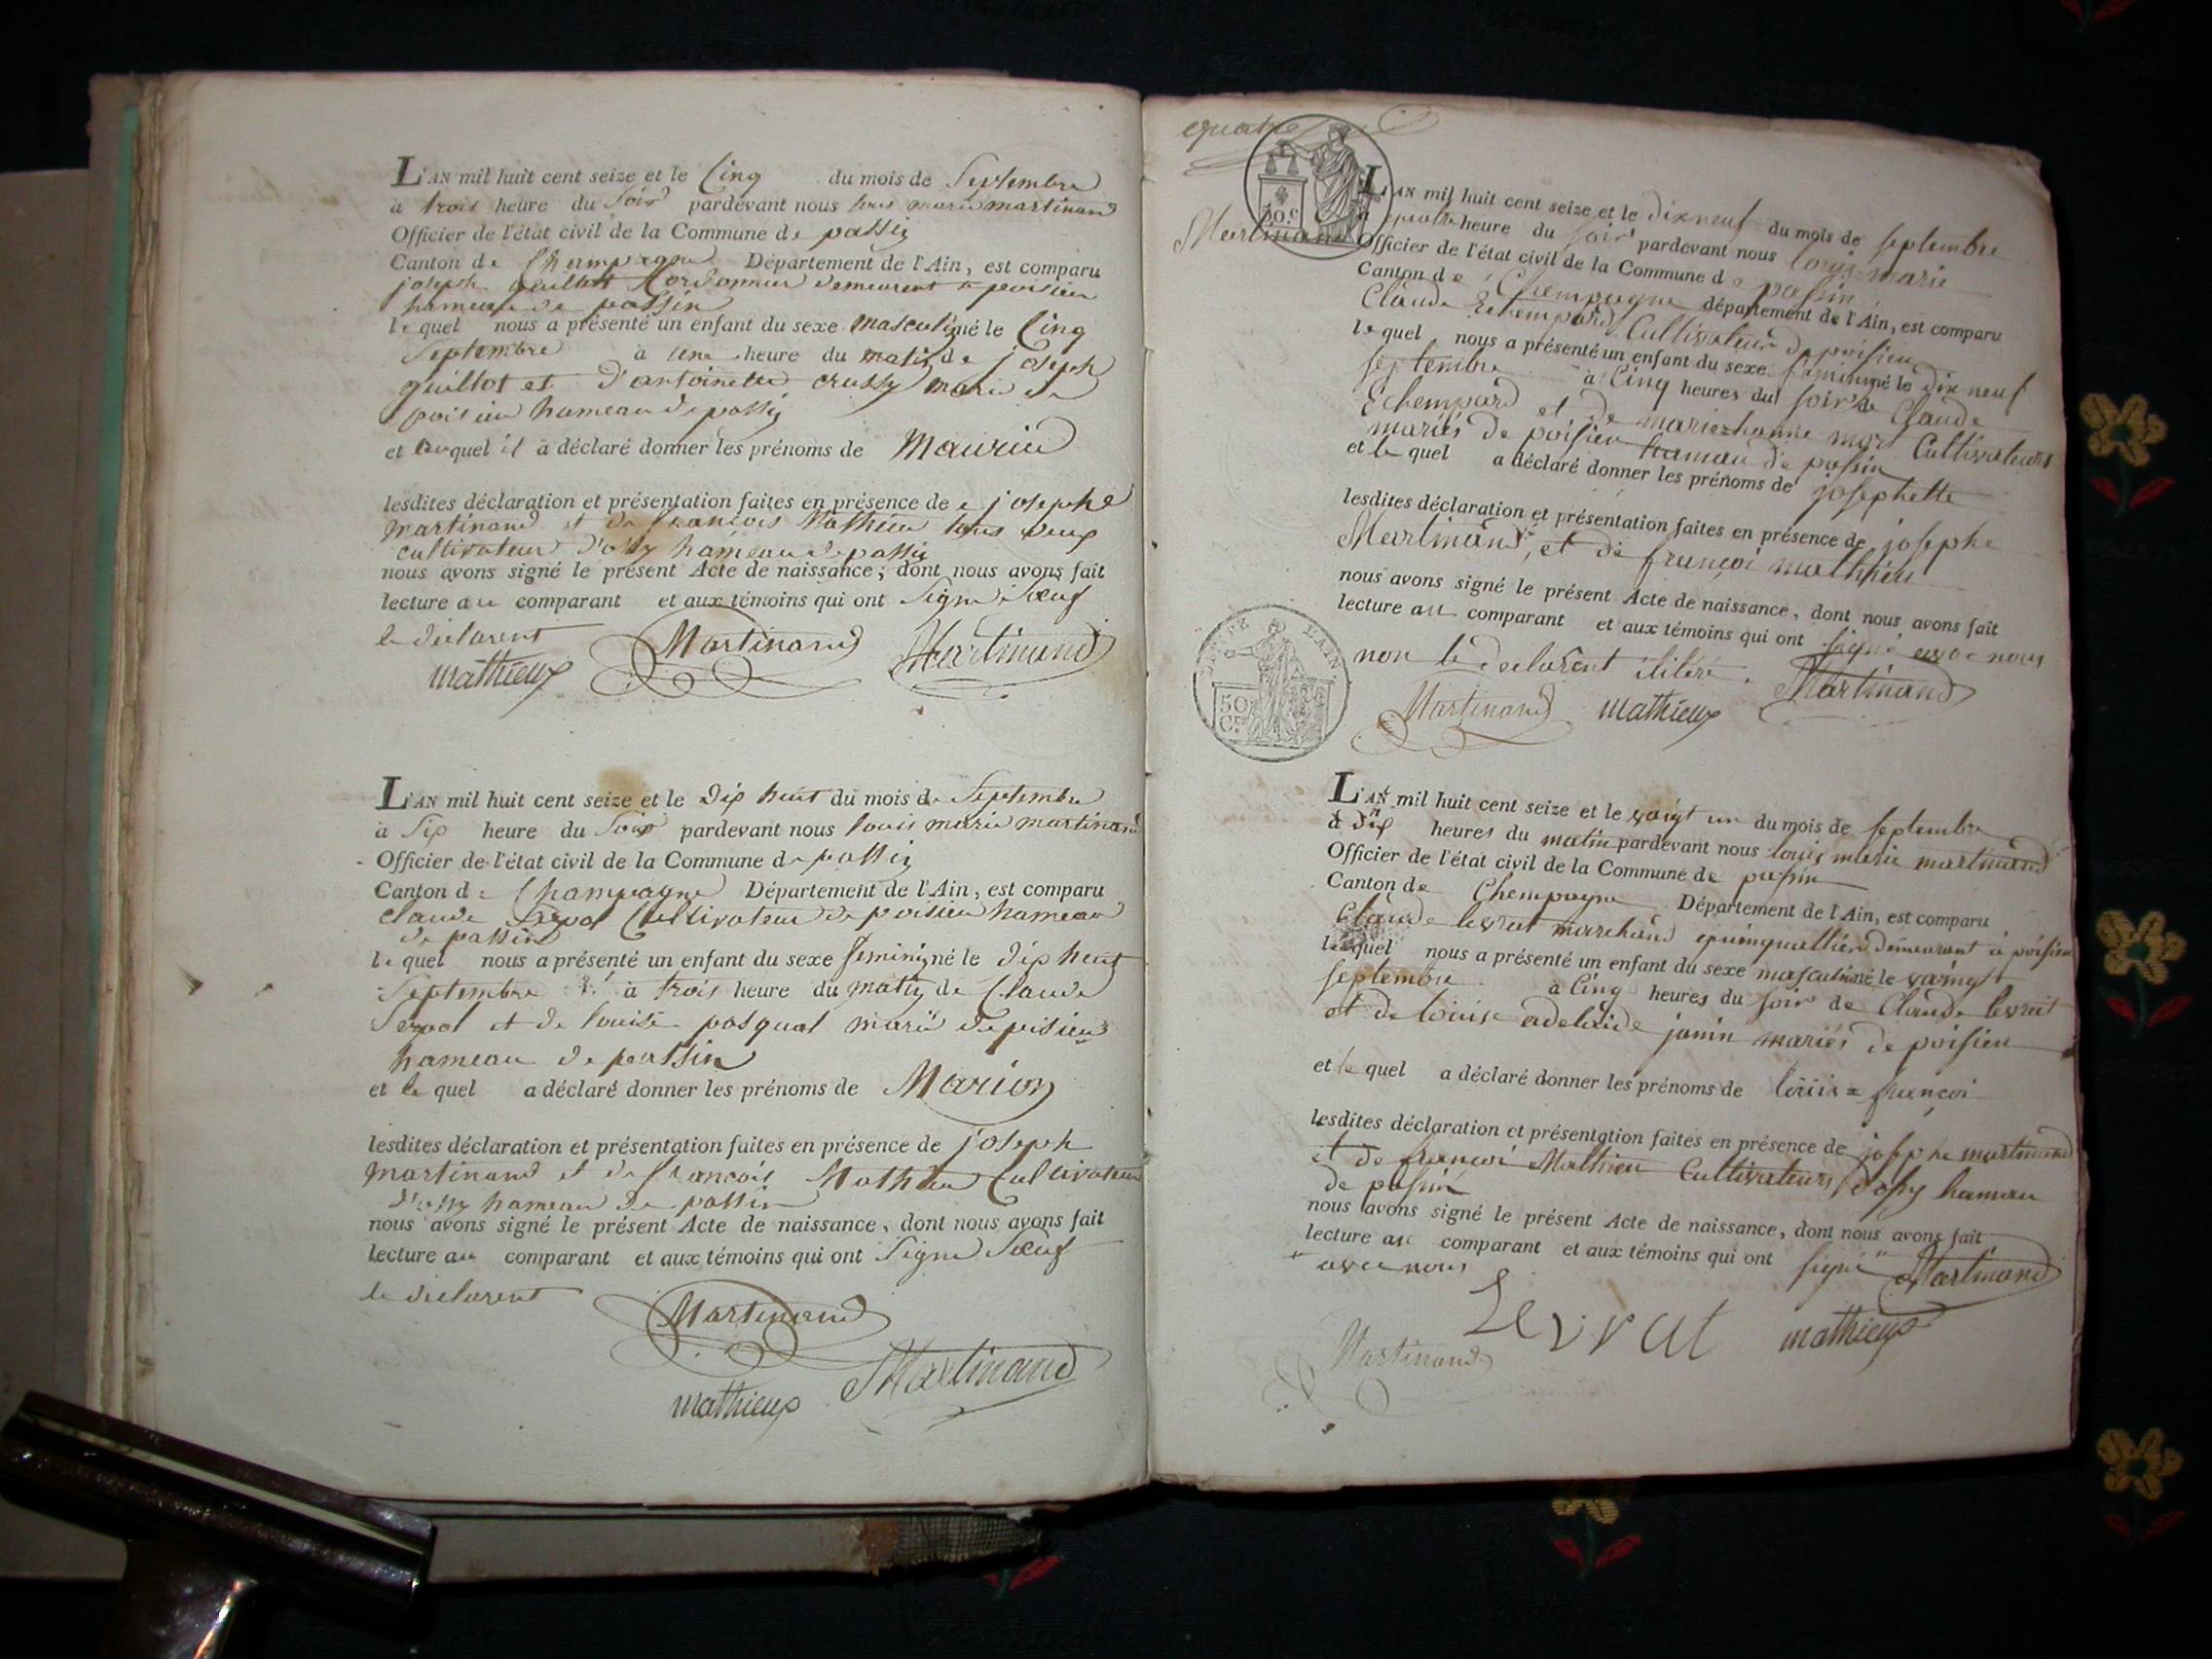 L'AN mil huit cent seize et le Cinq du mois de Septembre
à trois heure du Soir pardevant nous louis marie martinand
Officier de l'état civil de la Commune de passin
Canton de Champagne Département de l'Ain, est comparu
joseph guillot Cordonnier demeurent a poisieu
hameau de passin
lequel nous a présenté un enfant du sexe masculin né le Cinq
Septembre à une heure du matin de joseph
guillot et d'antoinette crussy marié de
poisieu hameau de passin
et auquel il a déclaré donner les prénoms de Maurice
lesdites déclaration et présentation faites en présence de josephe
martinand et de francois Mathieu tous deux
cultivateur d'ossy hameau de passin
nous avons signé le présent Acte de naissance; dont nous avons fait
lecture au comparant et aux témoins qui ont Signé Sœuf
le déclarent
mathieux Martinand Martinand
L'AN mil huit cent seize et le dix heut du mois de Septembre
à Six heure du Soir pardevant nous louis marie martinand
Officier de l'état civil de la Commune de passin
Canton de Champagne Département de l'Ain, est comparu
claude Cultivateur de poisieu hameau
de passin
lequel nous a présenté un enfant du sexe feminin né le dix heut
Septembre à trois heure du matin de Claude
et de louise pasquat marié de poisieu
hameau de passin
et le quel a déclaré donner les prénoms de Marion
lesdites déclaration et présentation faites en présence de joseph
martinand et de francois Mathieu Cultivateur
d'ossy hameau de passin
nous avons signé le présent Acte de naissance, dont nous avons fait
lecture au comparant et aux témoins qui ont Signé Sœuf
le déclarent
Martinand
mathieux Martinand
quatre
50.c
Martinand
L'AN mil huit cent seize et le dixneuf du mois de septembre
à quatre heure du soir pardevant nous louis-marie
Officier de l'état civil de la Commune de passin
Canton de Champagne département de l'Ain, est comparu
Claude Echempard Cultivateur de poisieu
lequel nous a présenté un enfant du sexe feminin né le dix neuf
septembre à Cinq heures du soir de Claude
Echempard et de mariezhanne mort Cultivateurs
mariés de poisieu hamau de passin
et le quel a déclaré donner les prénoms de josephette
lesdites déclaration et présentation faites en présence de josephe
Martinand, et de françoi mathieu
nous avons signé le présent Acte de naissance, dont nous avons fait
lecture au comparant et aux témoins qui ont signé avec nous
non le declarent ilitéré.
Martinand mathieux Martinand
L'AIN
50
C.
L'AN mil huit cent seize et le vaigt un du mois de septembre
à dix heures du matin pardevant nous louis marie martinand
Officier de l'état civil de la Commune de passin
Canton de Chempagne Département de l'Ain, est comparu
Claude levrat marchand quinquallier demeurant à poisieu
lequel nous a présenté un enfant du sexe masculin né le vaingt
septembre à Cinq heures du soir de Claude levrat
et de louise adelaide janin mariés de poisieu
et le quel a déclaré donner les prénoms de louis = françoi
lesdites déclaration et présentation faites en présence de josephe martinand
et de françoi Mathieu Cultivateurs d'ossy hamau
de passin
nous avons signé le présent Acte de naissance, dont nous avons fait
lecture au comparant et aux témoins qui ont signé
avec nous Martinand
Levrat mathieux
Martinand